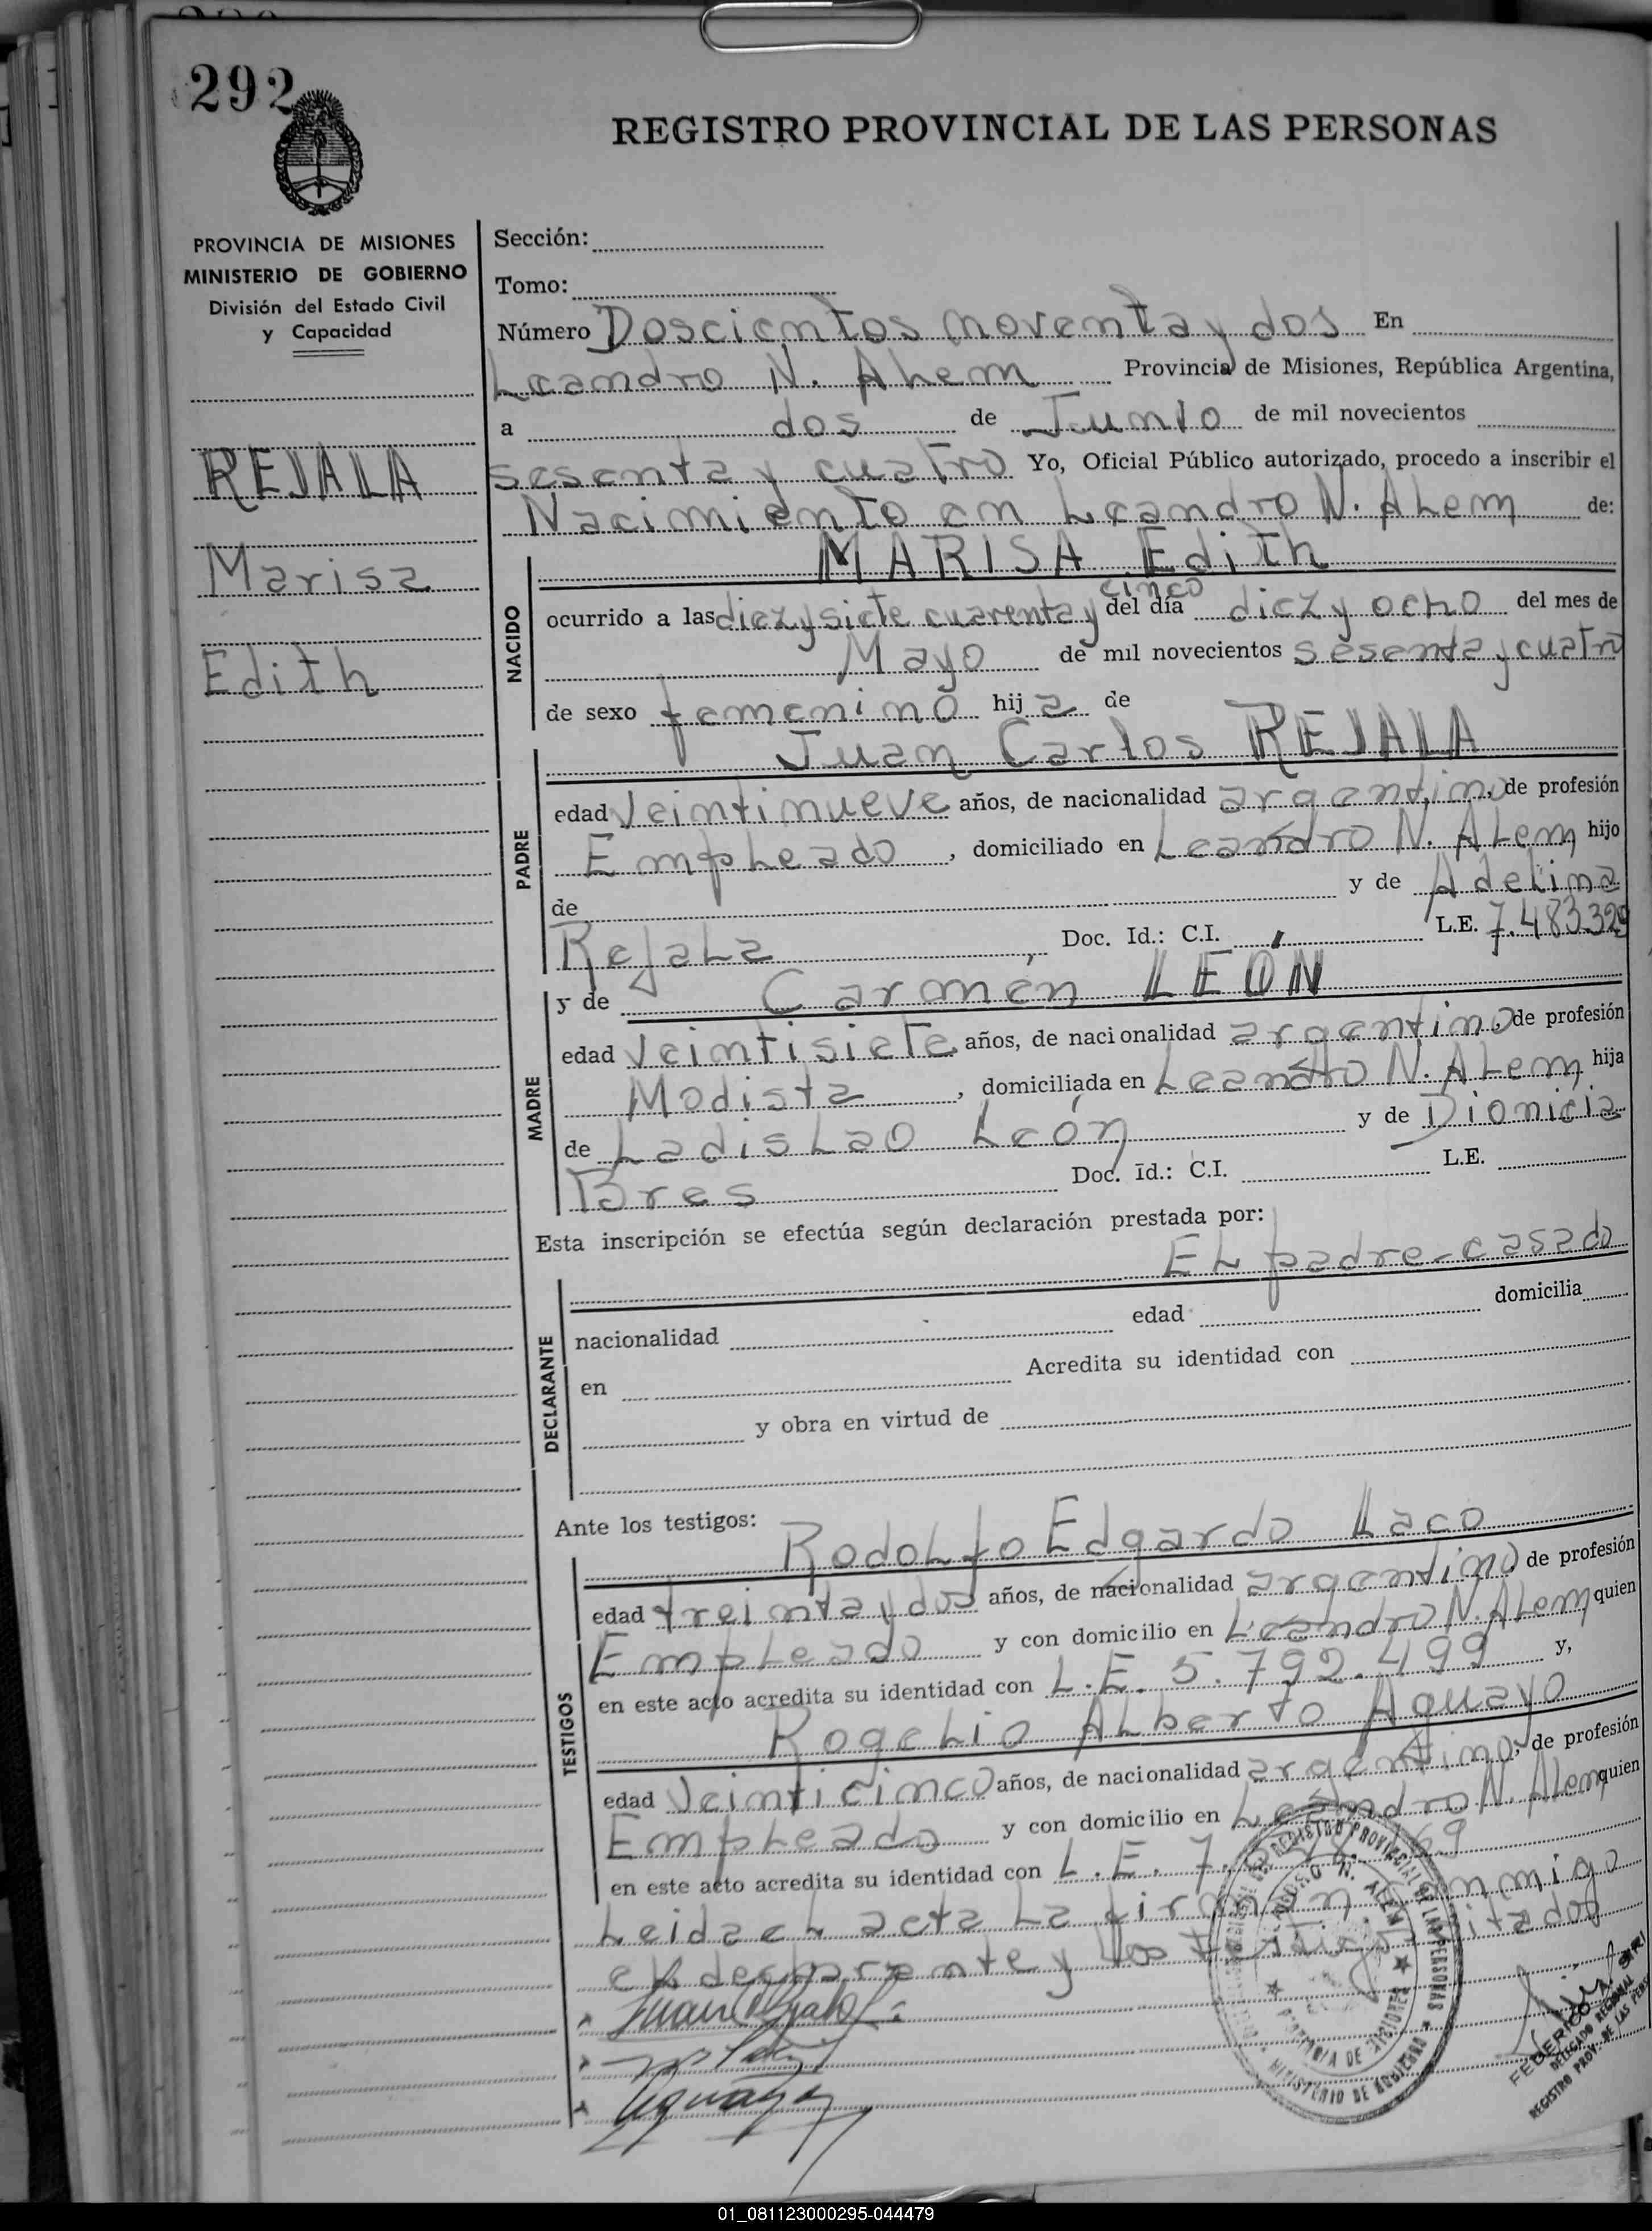 292
REGISTRO PROVINCIAL DE LAS PERSONAS
PROVINCIA DE MISIONES
MINISTERIO DE GOBIERNO
División del Estado Civil
y Capacidad
REJALA
Marisa
Edith
Sección:
Tomo:
Número Doscientos noventa y dos En
Leandro N. Alem Provincia de Misiones, República Argentina,
a dos de Junio de mil novecientos
sesenta y cuatro Yo, Oficial Público autorizado, procedo a inscribir el
Nacimiento en Leandro N. Alem de:
NACIDO
MARISA Edith
ocurrido a las diez y siete cuarenta y cinco del día diez y ocho del mes de
Mayo de mil novecientos sesenta y cuatro
de sexo femenino hija de
PADRE
Juan Carlos REJALA
edad veintinueve años, de nacionalidad argentino, de profesión
Empleado, domiciliado en Leandro N. Alem hijo
de y de Adelina
Rejala, Doc. Id.: C.I. L.E. 7.483.329
MADRE
y de Carmen LEÓN
edad veintisiete años, de nacionalidad argentino, de profesión
Modista, domiciliada en Leandro N. Alem hija
de Ladislao León y de Dionicia
Bres Doc. Id.: C.I. L.E.
Esta inscripción se efectúa según declaración prestada por:
DECLARANTE
El padre-casado
nacionalidad edad domicilia
en Acredita su identidad con
y obra en virtud de
Ante los testigos:
TESTIGOS
Rodolfo Edgardo Laco
edad treinta y dos años, de nacionalidad argentino, de profesión
Empleado y con domicilio en Leandro N. Alem quien
en este acto acredita su identidad con L.E. 5.792.499 y,
Rogelio Alberto Aguayo
edad veinticinco años, de nacionalidad argentino, de profesión
Empleado y con domicilio en Leandro N. Alem quien
en este acto acredita su identidad con L.E. 7.
Leida el acta la firman conmigo
el declarante y los testigos citados
REGISTRO PROVINCIAL DE LAS PERSONAS
MINISTERIO DE GOBIERNO
PROVINCIA DE MISIONES
Aguayo
FEDERICO A.
DELEGADO REGIONAL
REGISTRO PROV. DE LAS PERS
01_081123000295-044479